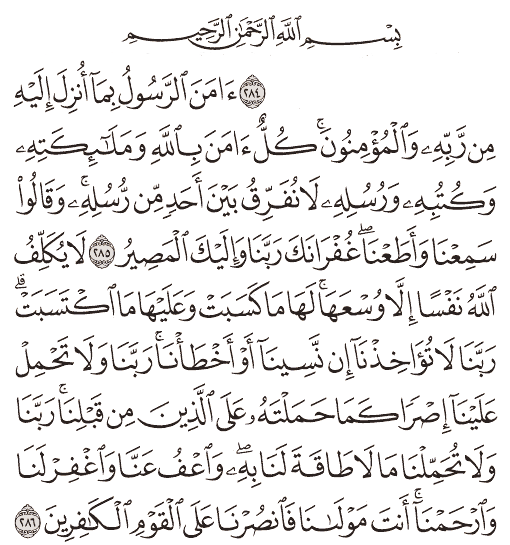 بِسْمِ ٱللَّهِ ٱلرَّحْمَٰنِ ٱلرَّحِيمِ
٢٨٤ ءَامَنَ ٱلرَّسُولُ بِمَآ أُنزِلَ إِلَيْهِ
مِن رَّبِّهِۦ وَٱلْمُؤْمِنُونَۚ كُلٌّ ءَامَنَ بِٱللَّهِ وَمَلَٰٓئِكَتِهِۦ
وَكُتُبِهِۦ وَرُسُلِهِۦ لَا نُفَرِّقُ بَيْنَ أَحَدٍ مِّن رُّسُلِهِۦۚ وَقَالُوا۟
سَمِعْنَا وَأَطَعْنَاۖ غُفْرَانَكَ رَبَّنَا وَإِلَيْكَ ٱلْمَصِيرُ ٢٨٥ لَا يُكَلِّفُ
ٱللَّهُ نَفْسًا إِلَّا وُسْعَهَاۚ لَهَا مَا كَسَبَتْ وَعَلَيْهَا مَا ٱكْتَسَبَتْۗ
رَبَّنَا لَا تُؤَاخِذْنَآ إِن نَّسِينَآ أَوْ أَخْطَأْنَاۚ رَبَّنَا وَلَا تَحْمِلْ
عَلَيْنَآ إِصْرًا كَمَا حَمَلْتَهُۥ عَلَى ٱلَّذِينَ مِن قَبْلِنَاۚ رَبَّنَا
وَلَا تُحَمِّلْنَا مَا لَا طَاقَةَ لَنَا بِهِۦۖ وَٱعْفُ عَنَّا وَٱغْفِرْ لَنَا
وَٱرْحَمْنَآۚ أَنتَ مَوْلَىٰنَا فَٱنصُرْنَا عَلَى ٱلْقَوْمِ ٱلْكَٰفِرِينَ ٢٨٦